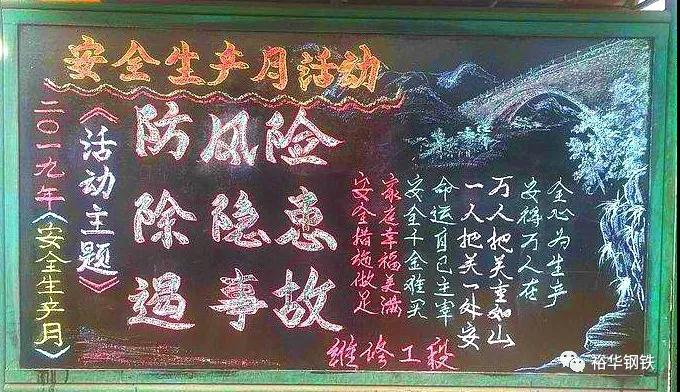 安全生产月活动
二〇一九年《安全生产月》
《活动主题》
防风险
除隐患
遏事故
全心为生产
安得万人在
万人把关重如山
一人把关一处安
命运自己主宰
安全千金难买
家庭幸福美满
安全措施做足
维修工段
裕华钢铁